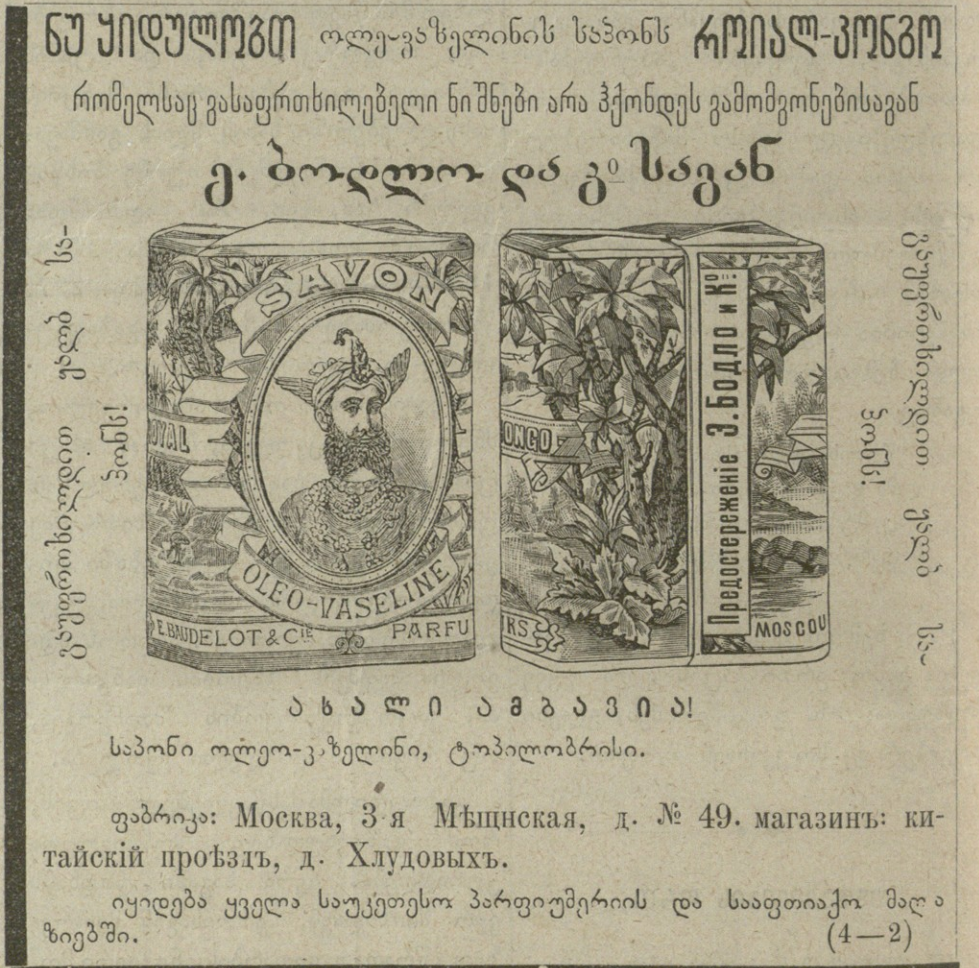 ნუ ყიდულობთ ოლე-ვაზელინის საპონს როიალ-კონგო
რომელსაც გასაფრთხილებელი ნიშნები არა ჰქონდეს გამომგონებისაგან
ე. ბოდლო და კº საგან
გაუფრთხილდით ყალბ სა-
პონს!
SAVON
OYAL
OLEO-VASELINE
E. BAUDELOT & CIE PARFU
ONGO
Предостереженіе Э. Бодло и Кº:
MOSCOU
გაუფრთხილდით ყალბ სა-
პონს!
ახალი ამბავია!
საპონი ოლეო-ვაზელინი, ტოპილობრისი.
ფაბრიკა: Москва, 3 я Мѣщнская, д. № 49. магазинъ: ки-
тайскій проѣздъ, д. Хлудовыхъ.
იყიდება ყველა საუკეთესო პარფიუმერიის და სააფთიაქო მაღა
ზიებში. (4—2)